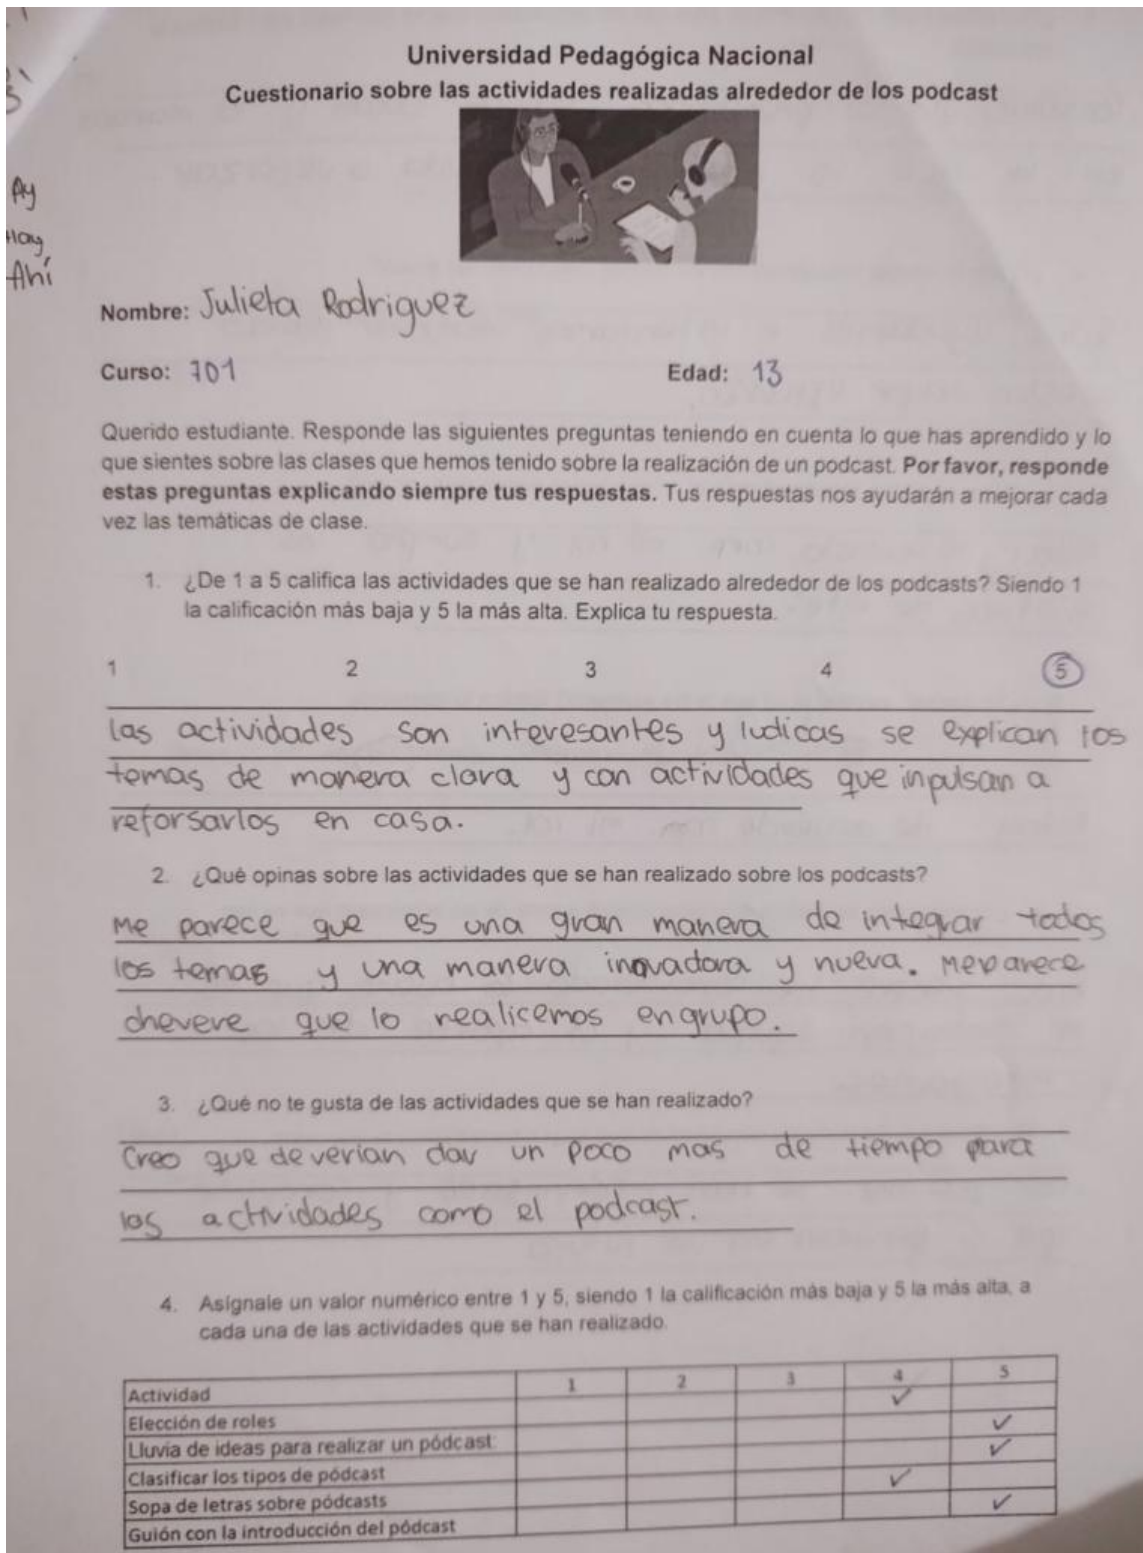 Universidad Pedagógica Nacional
Cuestionario sobre las actividades realizadas alrededor de los podcast
Ay
Hay
Ahí
Nombre: Julieta Rodriguez
Curso: 701 Edad: 13
Querido estudiante. Responde las siguientes preguntas teniendo en cuenta lo que has aprendido y lo
que sientes sobre las clases que hemos tenido sobre la realización de un podcast. Por favor, responde
estas preguntas explicando siempre tus respuestas. Tus respuestas nos ayudarán a mejorar cada
vez las temáticas de clase.
1. ¿De 1 a 5 califica las actividades que se han realizado alrededor de los podcasts? Siendo 1
la calificación más baja y 5 la más alta. Explica tu respuesta.
1 2 3 4 5
las actividades son interesantes y ludicas se explican los
temas de manera clara y con actividades que inpulsan a
reforsarlos en casa.
2. ¿Qué opinas sobre las actividades que se han realizado sobre los podcasts?
Me parece que es una gran manera de integrar todos
los temas y una manera inovadora y nueva. Me parece
chevere que lo realicemos en grupo.
3. ¿Qué no te gusta de las actividades que se han realizado?
Creo que deverian dar un poco mas de tiempo para
las actividades como el podcast.
4. Asígnale un valor numérico entre 1 y 5, siendo 1 la calificación más baja y 5 la más alta, a
cada una de las actividades que se han realizado.
Actividad 1 2 3 4 5
Elección de roles ✓
Lluvia de ideas para realizar un pódcast: ✓
Clasificar los tipos de pódcast ✓
Sopa de letras sobre pódcasts ✓
Guión con la introducción del pódcast ✓